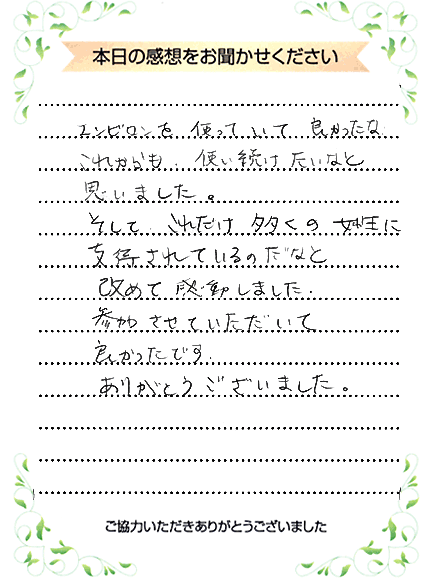 本日の感想をお聞かせください
エンビロンを使っていて良かったな
これからも、使い続けたいなと
思いました。
そして、これだけ多くの女性に
支持されているのだなと
改めて感動しました.
参加させていただいて
良かったです.
ありがとうございました。
ご協力いただきありがとうございました